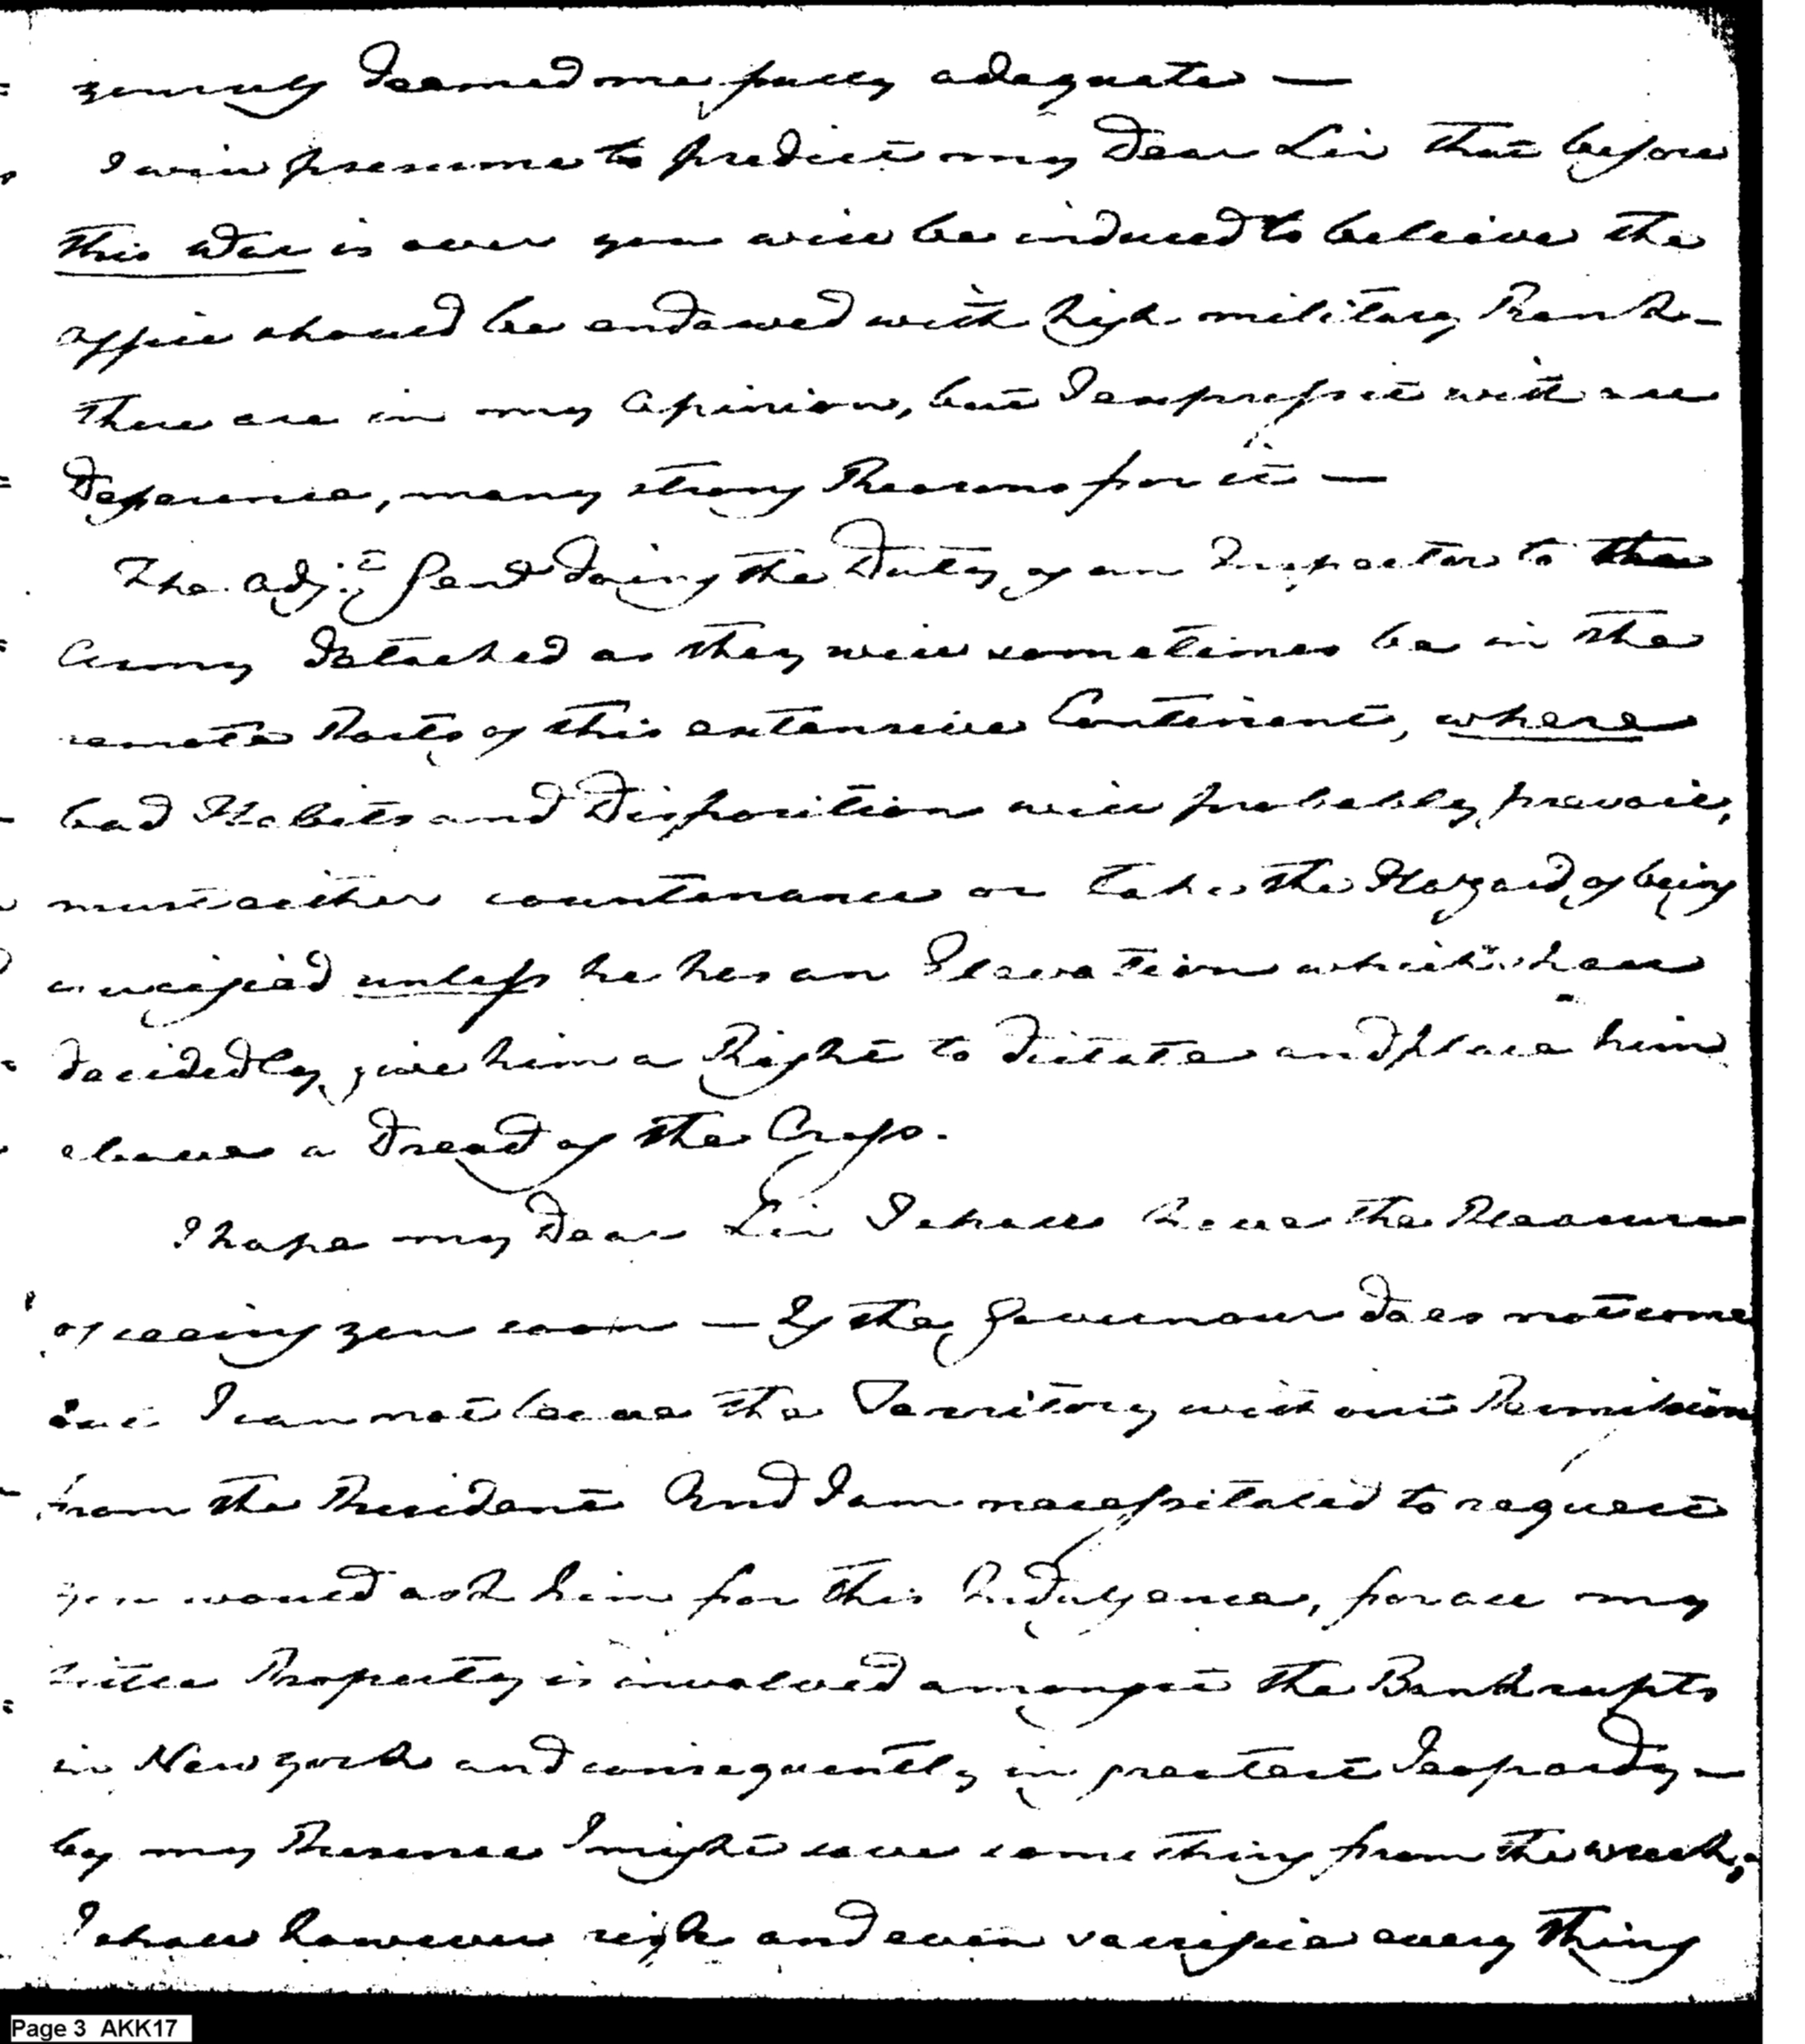 generously deemed me fully adequate —
I will presume to predict my Dear Sir that before
this War is over you will be induced to believe the
office should be endowed with high military Rank —
there are in my Opinion, but I express it with all
Deference, many strong Reasons for it —
The Adjt Genl doing the Duty of an Inspector to the
Army detached as they will sometimes be in the
remote Parts of this extensive Continent, where
bad Habits and Disposition will probably prevail,
must either countenance or take the Hazard of being
crucified unless he has an Elevation which shall
decidedly give him a Right to dictate and place him
above a Dread of the Cross.
I hope my Dear Sir I shall have the Pleasure
of seeing you soon — If the Governour does not come
out I can not leave the Territory without Permission
from the President And I am necessitated to request
you would ask him for this Indulgence, for all my
little Property is involved amongst the Bankrupts
in New York and consequently in greatest Jeopardy —
by my Presence I might save something from the wreck,
I shall however risk and even sacrifice every thing
Page 3 AKK17